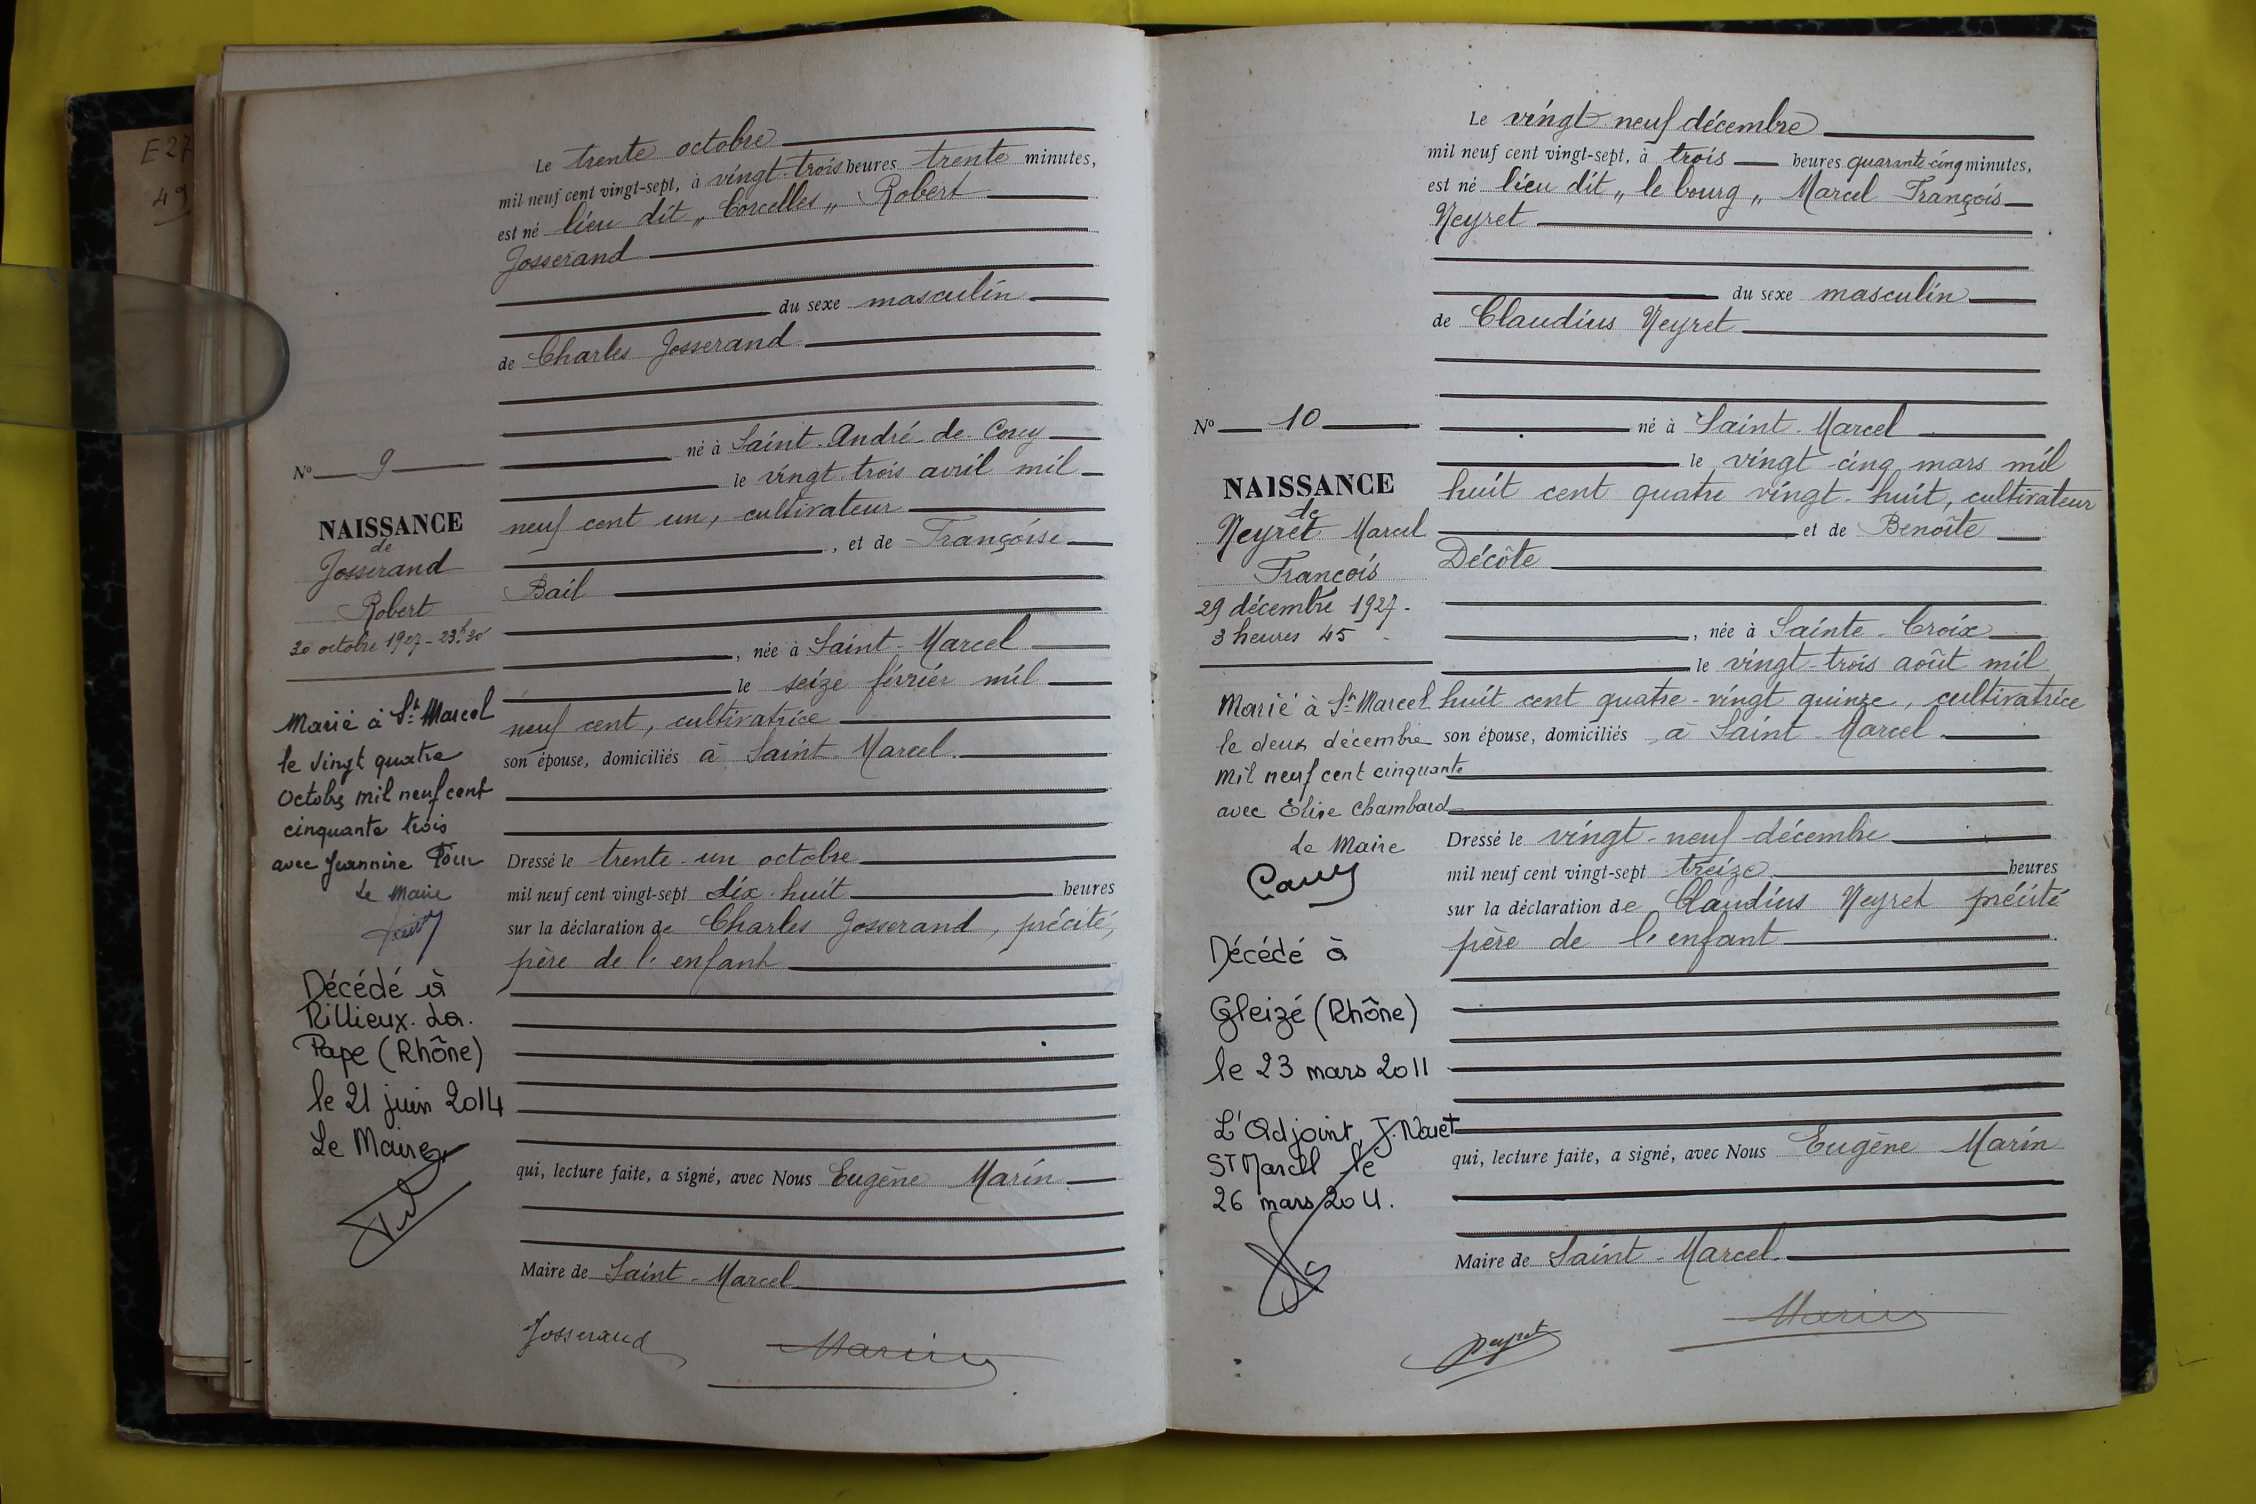 E 27
49
Le trente octobre
mil neuf cent vingt-sept, à vingt-trois heures trente minutes,
est né lieu dit „ Corcelles „ Robert
Josserand
du sexe masculin
de Charles Josserand
né à Saint-André-de-Corcy
le vingt-trois avril mil
neuf cent un, cultivateur
, et de Françoise
Bail
, née à Saint-Marcel
le seize février mil
neuf cent, cultivatrice
son épouse, domiciliés à Saint-Marcel.
Dressé le trente-un octobre
mil neuf cent vingt-sept dix-huit heures
sur la déclaration de Charles Josserand, précité,
père de l'enfant
qui, lecture faite, a signé, avec Nous Eugène Marin
Maire de Saint-Marcel
Josserand
Marin
N° 9
NAISSANCE
de
Josserand
Robert
30 octobre 1927 - 23h30
Marié à St Marcel
le vingt quatre
Octobre mil neuf cent
cinquante trois
avec Jeannine
Le Maire
Décédé à
Rillieux-La-
Pape (Rhône)
le 21 juin 2014
Le Maire
Le vingt-neuf décembre
mil neuf cent vingt-sept, à trois heures quarante cinq minutes,
est né lieu dit „ le bourg „ Marcel François
Neyret
du sexe masculin
de Claudius Neyret
né à Saint-Marcel
le vingt-cinq mars mil
huit cent quatre vingt-huit, cultivateur
et de Benoîte
Décôte
, née à Sainte-Croix
le vingt-trois août mil
huit cent quatre-vingt quinze, cultivatrice
son épouse, domiciliés à Saint-Marcel.
Dressé le vingt-neuf décembre
mil neuf cent vingt-sept treize heures
sur la déclaration de Claudius Neyret précité
père de l'enfant
qui, lecture faite, a signé, avec Nous Eugène Marin
Maire de Saint-Marcel.
Neyret
Marin
N° 10
NAISSANCE
de
Neyret Marcel
François
29 décembre 1927-
3 heures 45
Marié à St Marcel
le deux décembre
mil neuf cent cinquante
avec Elise Chambard
Le Maire
Décédé à
Gleizé (Rhône)
le 23 mars 2011
L'Adjoint,
ST Marcel le
26 mars 2011.